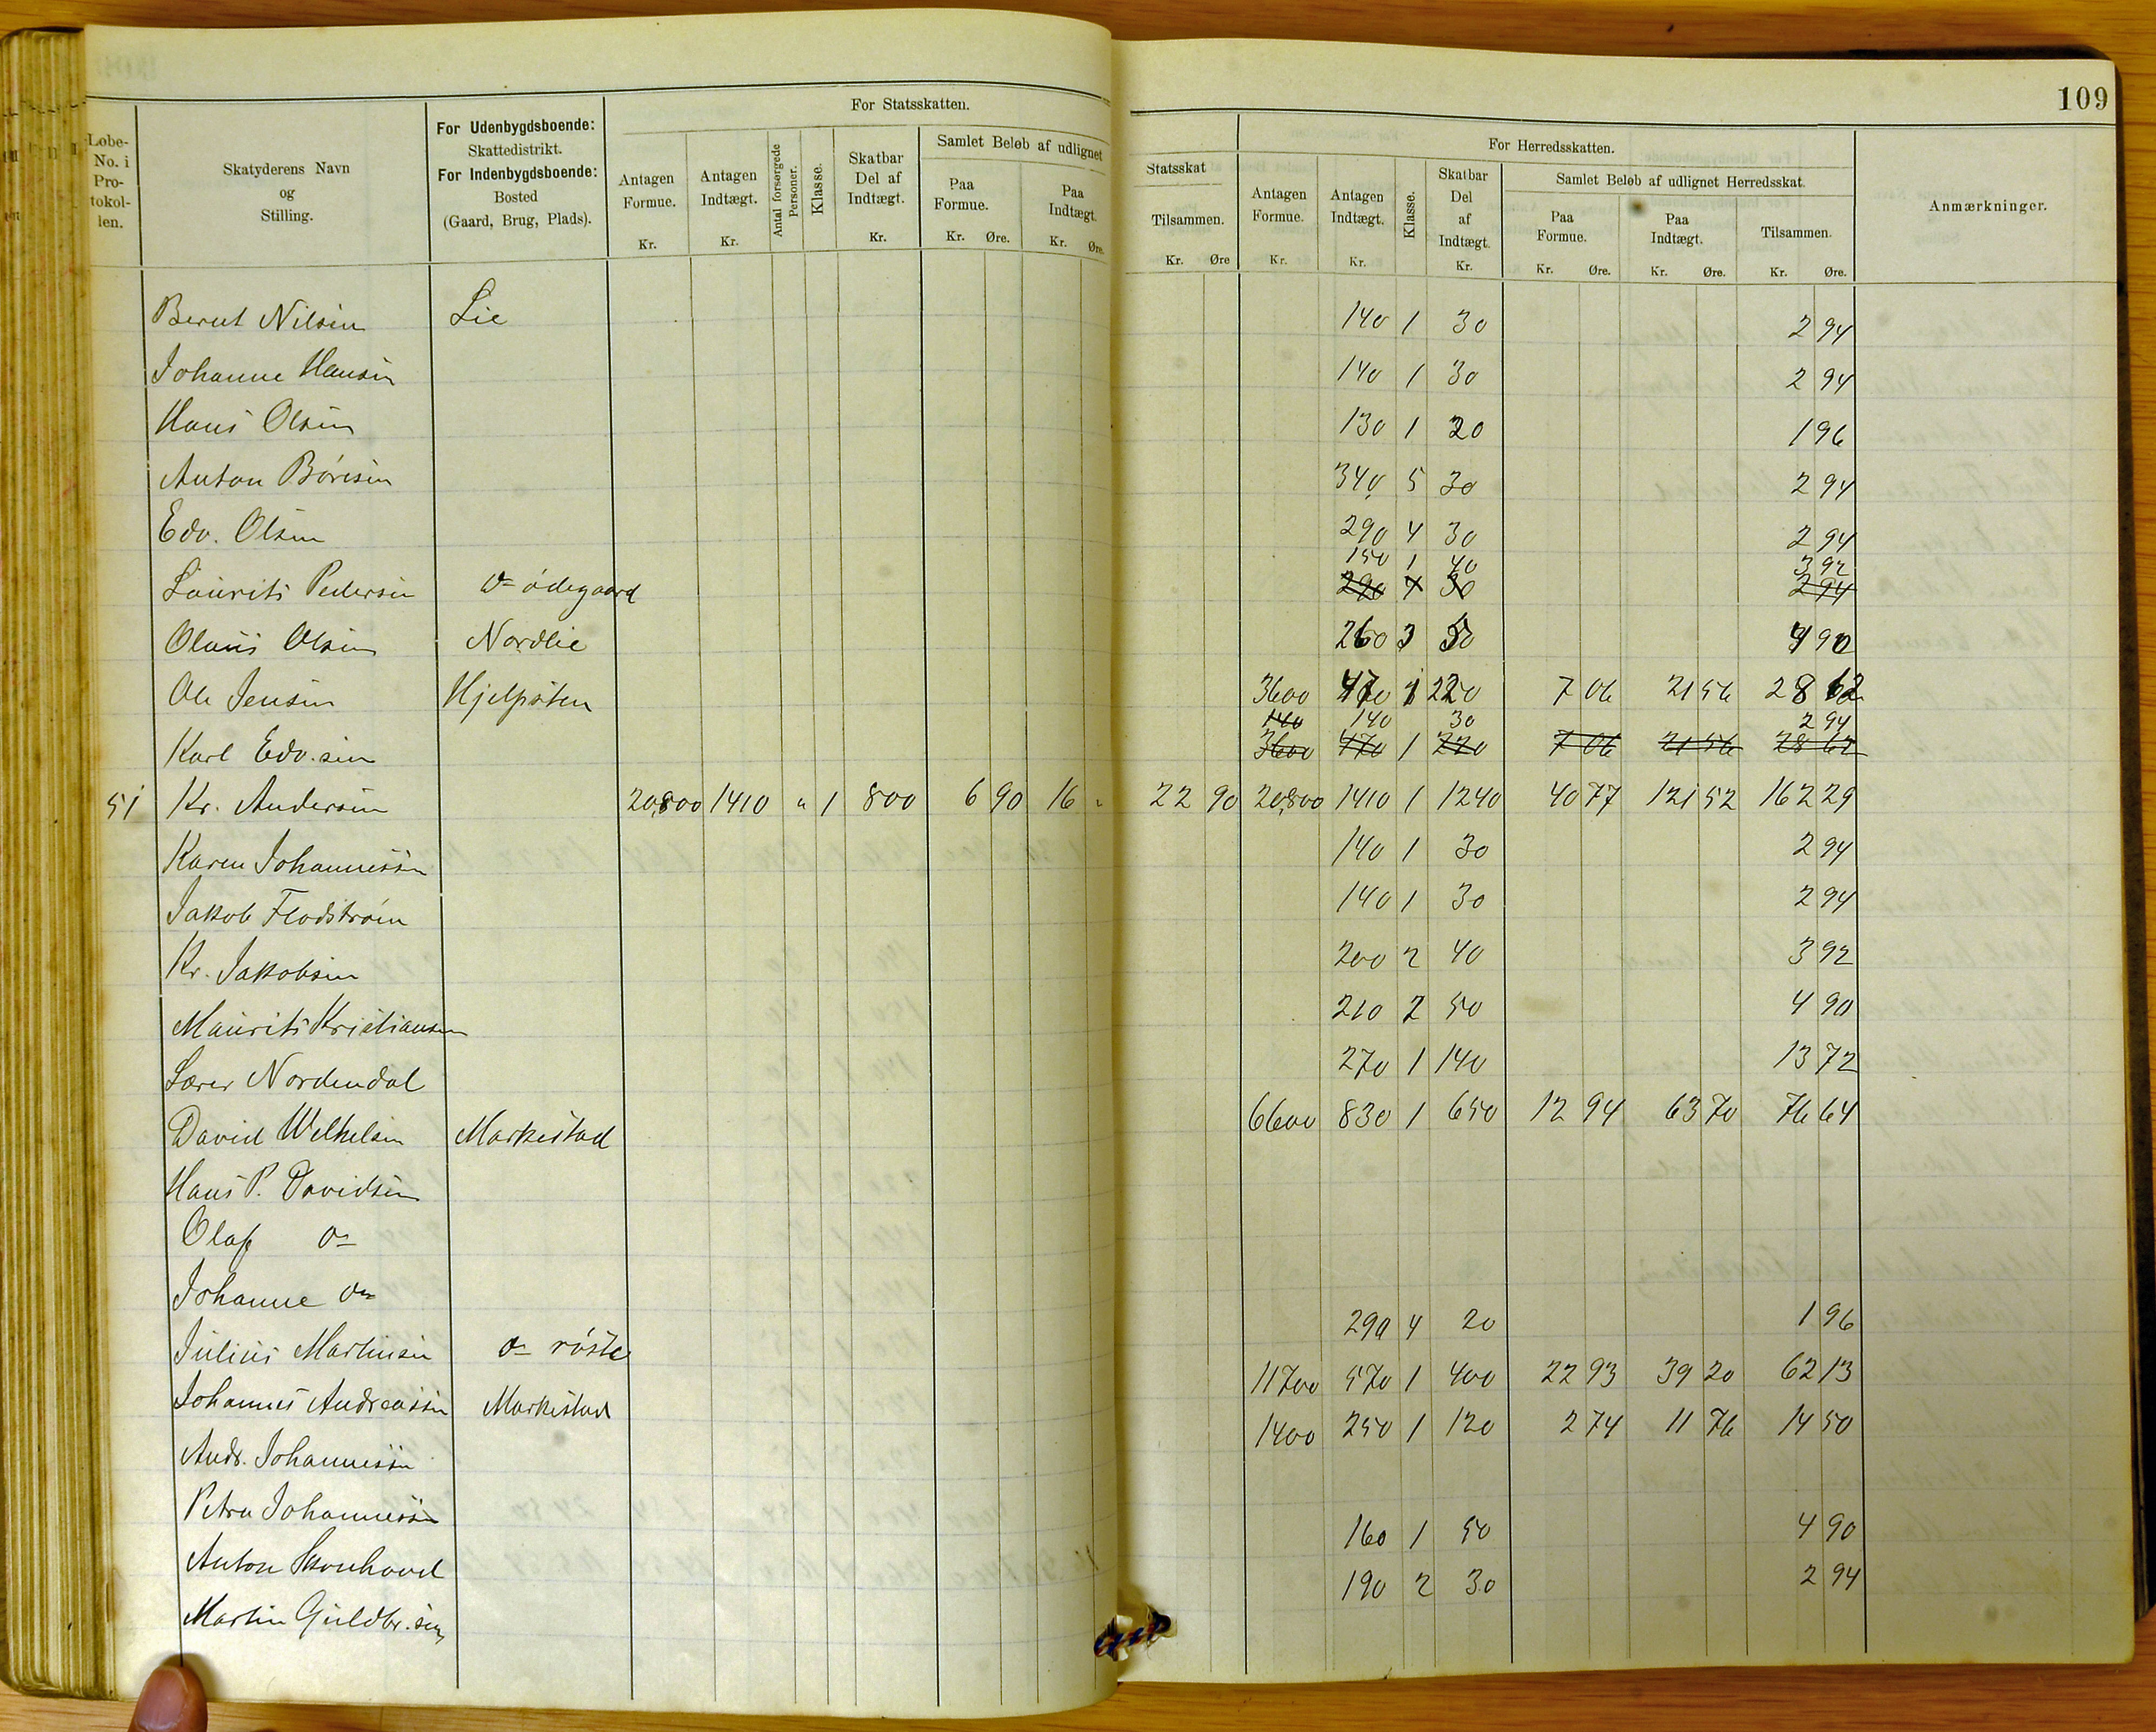 109
For Statsskatten.
Statsskat
For Herredsskatten.
Løbe-No. i Protokollen.
Skatyderens Navn og Stilling.
For Udenbygdsboende: Skattedistrikt. For Indenbygdsboende: Bosted (Gaard, Brug, Plads).
Antagen Formue. Kr.
Antagen Indtægt. Kr.
Antal forsørgede Personer.
Klasse.
Skatbar Del af Indtægt. Kr.
Samlet Beløb af udlignet
Paa Formue. Kr. Øre.
Paa Indtægt. Kr. Øre.
Tilsammen. Kr. Øre
Antagen Formue. Kr.
Antagen Indtægt. Kr.
Klasse.
Skatbar Del af Indtægt. Kr.
Samlet Beløb af udlignet Herredsskat.
Paa Formue. Kr. Øre.
Paa Indtægt. Kr. Øre.
Tilsammen. Kr. Øre.
Anmærkninger.
Bernt Nilsen Lie 140 1 30 2 94
Johanne Hansen 140 1 30 2 94
Hans Olsen 130 1 20 1 96
Anton Børesen 340 5 30 2 94
Edv. Olsen 290 4 30 2 94
150 1 40 3 92
Laurits Pedersen do ødegaard 290 4 30 2 94
Olaus Olsen Nordlie 260 3 50 4 90
Ole Jensen Hjelpsten 3600 1 220 7 06 21 56 28 62
140 140 30 2 94
Karl Edv.sen 3600 470 1 220 7 06 21 56 28 62
51 Kr. Andersen 20,800 1410 " 1 800 6 90 16 " 22 90 20,800 1410 1 1240 40 77 121 52 162 29
Karen Johannessen 140 1 30 2 94
Jakob Flodstrøm 140 1 30 2 94
Kr. Jakobsen 200 2 40 3 92
Maurits Kristiansen 210 2 50 4 90
Lærer Nordendal 270 1 140 13 72
David Welhelsen Markestad 6600 830 1 650 12 94 63 70 76 64
Hans P. Davidsen
Olaf do
Johanne do
290 4 20 1 96
Julius Martinsen do røste
11700 570 1 400 22 93 39 20 62 13
Johannes Andreassen Markestad
1400 250 1 120 2 74 11 76 14 50
Andr. Johannessen
Petra Johannessen
160 1 50 4 90
Anton Skonhovd
190 2 30 2 94
Martin Guldbr.sen